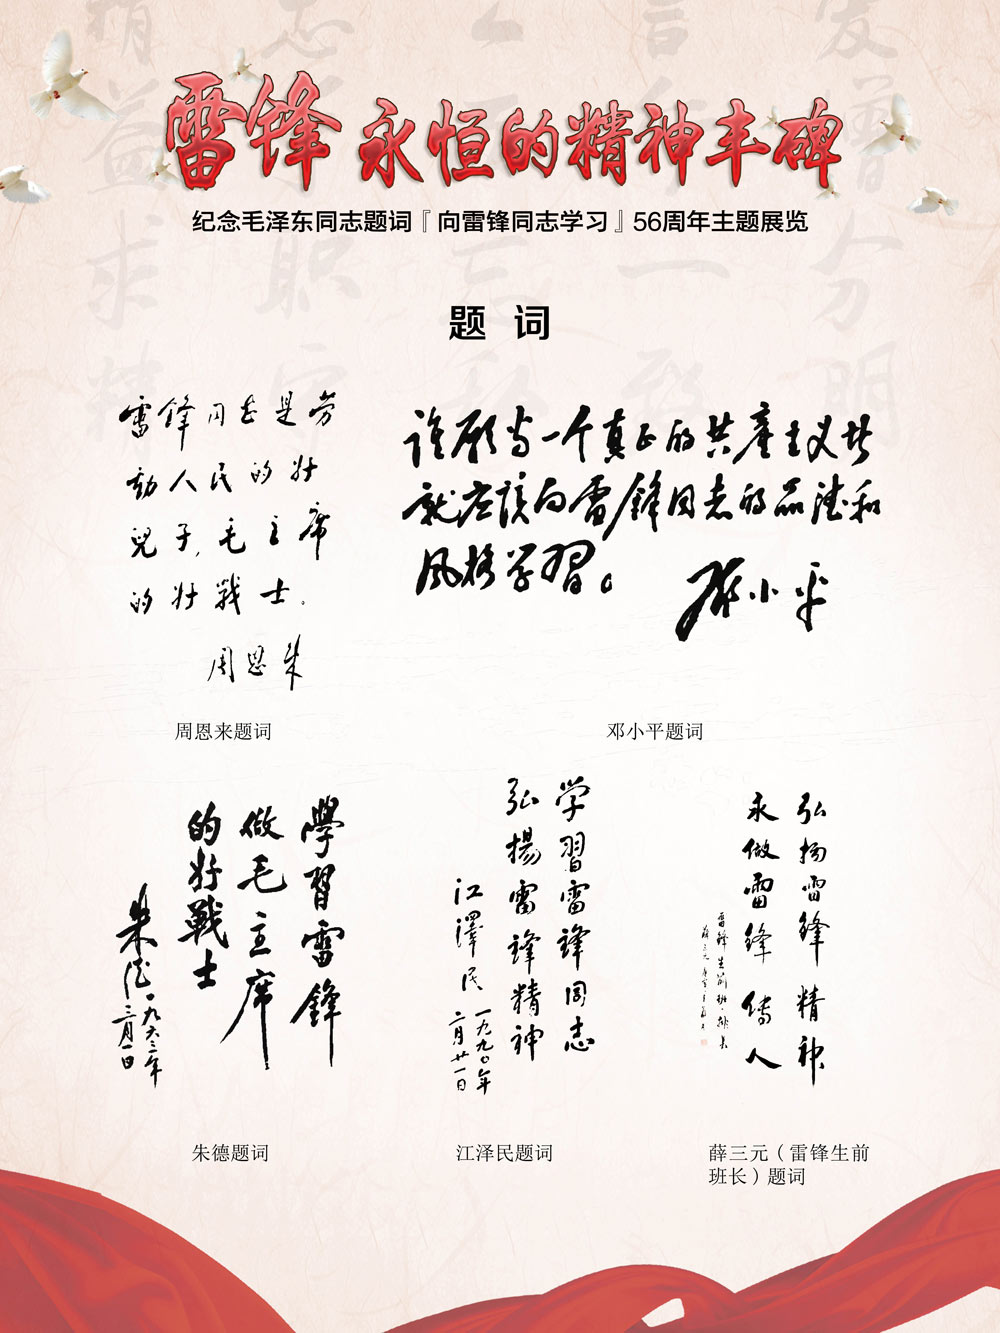 雷锋 永恒的精神丰碑
纪念毛泽东同志题词『向雷锋同志学习』56周年主题展览
题 词
雷锋同志是劳
動人民的好
兒子,毛主席
的好戰士。
周恩来
周恩来题词
谁愿当一个真正的共產主义者
就应该向雷锋同志的品德和
风格学習。
邓小平
邓小平题词
學習雷鋒
做毛主席
的好戰士
朱德
一九六三年
三月一日
朱德题词
学習雷锋同志
弘揚雷锋精神
江澤民
一九九〇年
二月廿一日
江泽民题词
弘扬雷锋精神
永做雷锋传人
雷锋生前班、排长
薛三元
薛三元（雷锋生前
班长）题词
精益求精
忠于职守
言行一致
爱憎分明